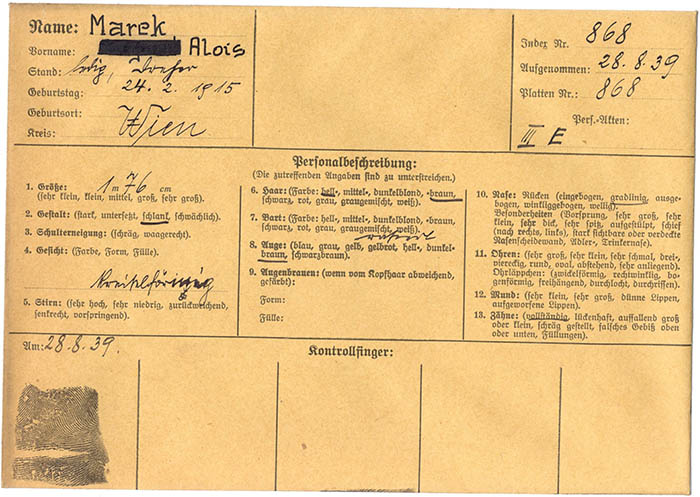 Name: Marek
Vorname: Alois
Stand: ledig, Dreher
Geburtstag: 24. 2. 1915
Geburtsort: Wien
Kreis:
Index Nr. 868
Aufgenommen: 28.8.39
Platten Nr.: 868
Pers.-Akten:
III E
Personalbeschreibung:
(Die zutreffenden Angaben sind zu unterstreichen.)
1. Größe: 1 m 76 cm
(sehr klein, klein, mittel, groß, sehr groß).
2. Gestalt: (stark, untersetzt, schlank, schwächlich).
3. Schulterneigung: (schräg, waagerecht).
4. Gesicht: (Farbe, Form, Fülle).
kreiselförmig
5. Stirn: (sehr hoch, sehr niedrig, zurückweichend,
senkrecht, vorspringend).
6. Haar: (Farbe: hell-, mittel-, dunkelblond, -braun,
schwarz, rot, grau, graugemischt, weiß).
7. Bart: (Farbe: hell-, mittel-, dunkelblond, -braun,
schwarz, rot, grau, graugemischt, weiß).
rasiert
8. Auge: (blau, grau, gelb, gelbrot, hell-, dunkel-
braun, schwarzbraun).
9. Augenbrauen: (wenn vom Kopfhaar abweichend,
gefärbt):
Form:
Fülle:
10. Nase: Rücken (eingebogen, gradlinig, ausge-
bogen, winkliggebogen, wellig).
Besonderheiten (Vorsprung, sehr groß, sehr
klein, sehr dick, sehr spitz, aufgestülpt, schief
(nach rechts, links), stark sichtbare oder verdeckte
Nasenscheidewand, Adler-, Trinkernase).
11. Ohren: (sehr groß, sehr klein, sehr schmal, drei-,
viereckig, rund, oval, abstehend, sehr anliegend).
Ohrläppchen: (zwickelförmig, rechtwinklig, bo-
genförmig, freihängend, durchlocht, durchrissen).
12. Mund: (sehr klein, sehr groß, dünne Lippen,
aufgeworfene Lippen).
13. Zähne: (vollständig, lückenhaft, auffallend groß
oder klein, schräg gestellt, falsches Gebiß oben
oder unten, Füllungen).
Am: 28.8.39.
Kontrollfinger: